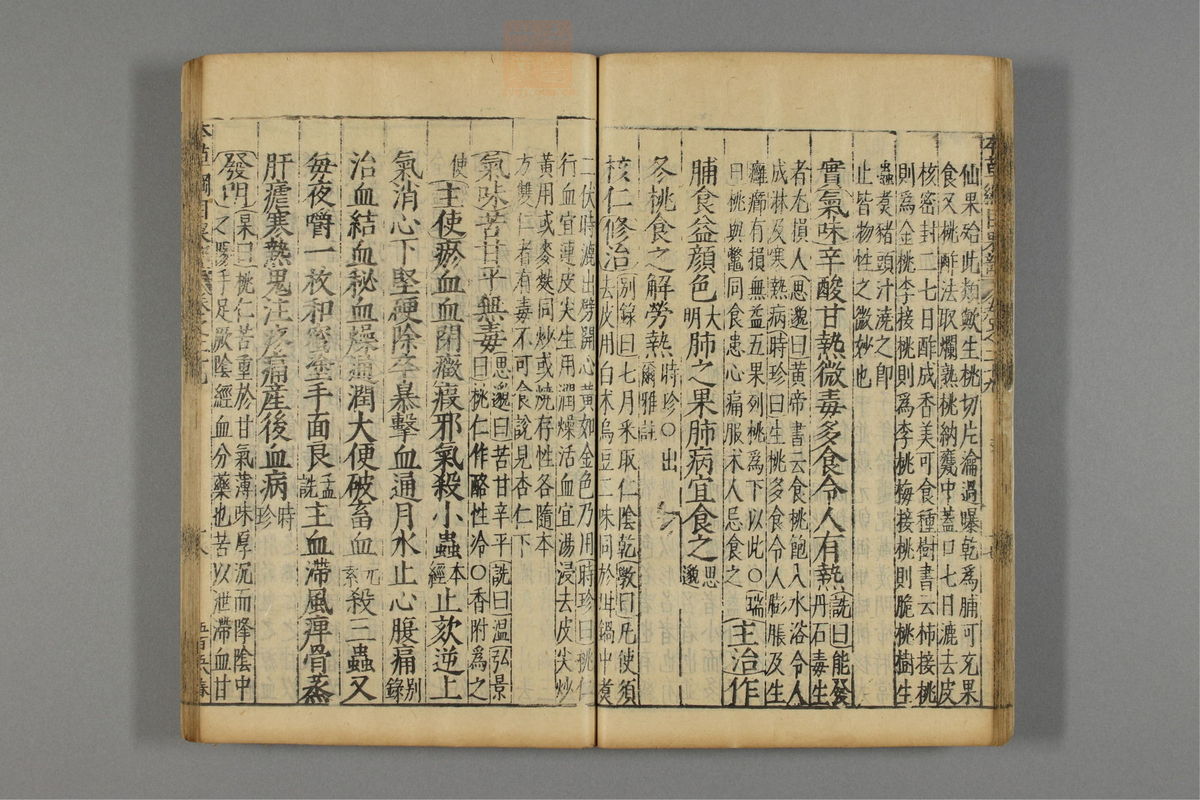 仙果殆此類歟生桃切片瀹過曝乾為脯可充果
食又桃酢法取爛熟桃納甕中蓋口七日漉去皮
核密封二七日酢成香美可食種樹書云柿接桃
則為金桃李接桃則為李桃梅接桃則脆桃樹生
蟲煑猪頭汁澆之即
止皆物性之微妙也
實氣味辛酸甘熱微毒多食令人有熱
詵曰能發丹石毒生
者尤損人思邈曰黃帝書云食桃飽入水浴令人
成淋及寒熱病時珍曰生桃多食令人膨脹及生
癰癤有損無益五果列桃為下以此○瑞
曰桃與鼈同食患心痛服术人忌食之
主治作
脯食益顏色大明肺之果肺病宜食之思邈
冬桃食之解勞熱時珍○出爾雅註
核仁修治
別錄曰七月采取仁陰乾斆曰凡使須
去皮用白术烏豆二味同於坩鍋中煑
二伏時漉出劈開心黃如金色乃用時珍曰桃仁
行血宜連皮尖生用潤燥活血宜湯浸去皮尖炒
黃用或麥麩同炒或燒存性各隨本
方雙仁者有毒不可食說見杏仁下
氣味苦甘平無毒
思邈曰苦甘辛平詵曰溫弘景
曰桃仁作酪性冷○香附為之
使
主使瘀血血閉癥瘕邪氣殺小蟲本經止欬逆上
氣消心下堅硬除卒暴擊血通月水止心腹痛別錄
治血結血秘血燥通潤大便破畜血元素殺三蟲又
每夜嚼一枚和蜜塗手面良孟詵主血滯風痺骨蒸
肝瘧寒熱鬼注疼痛產後血病時珍
發明
杲曰桃仁苦重於甘氣薄味厚沉而降陰中
之陽手足厥陰經血分藥也苦以泄滯血甘